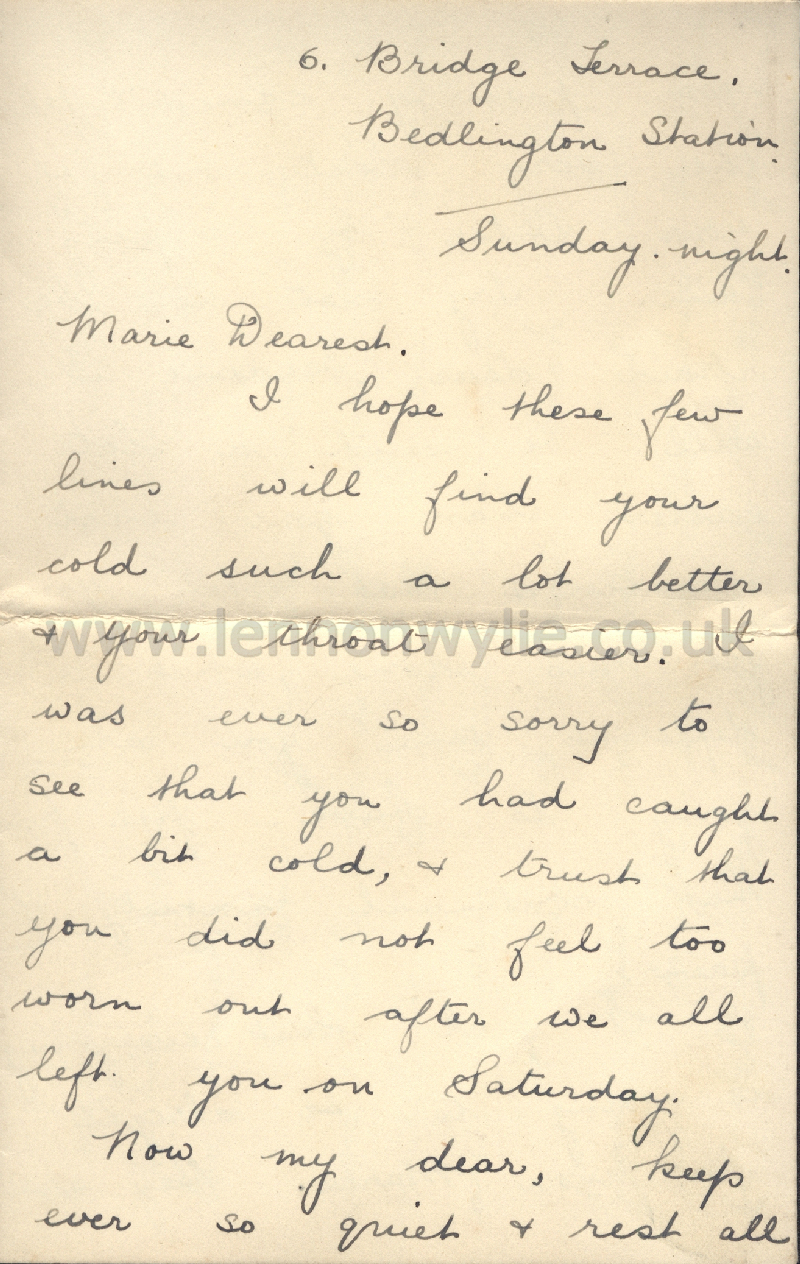 6. Bridge Terrace.
Bedlington Station.
Sunday. night.
Marie Dearest.
I hope these few
lines will find your
cold such a lot better
& your throat easier. I
www.lennonwylie.co.uk
was ever so sorry to
see that you had caught
a bit cold, & trust that
you did not feel too
worn out after we all
left. you on Saturday.
Now my dear, keep
ever so quiet & rest all